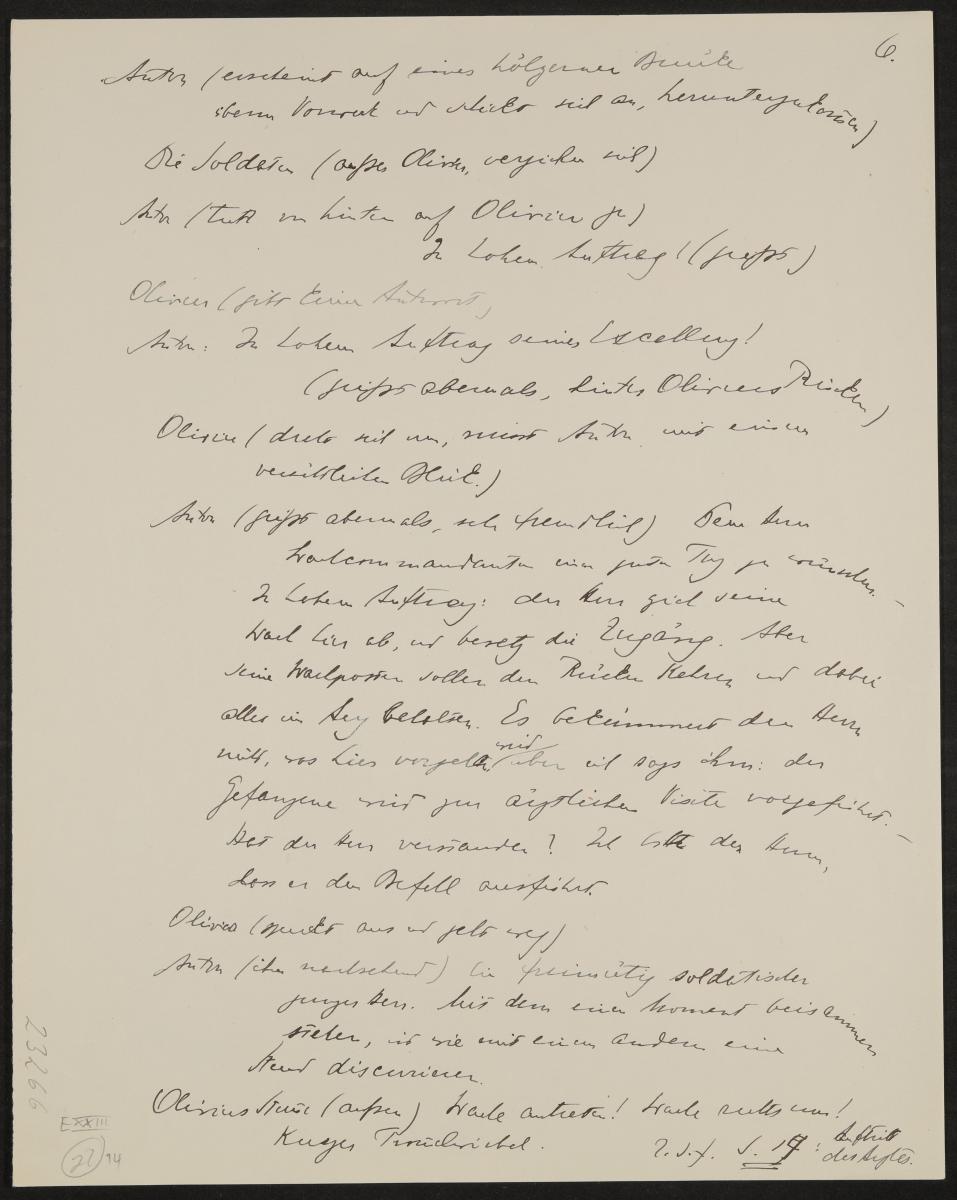 6.
Anton (erscheint auf einer hölzernen Brücke
überm Vorwerk und schickt sich an, herunterzukommen)
Die Soldaten (außer Olivier, verziehen sich)
Anton (tritt von hinten auf Olivier zu)
In hohem Auftrag! (grüßt)
Olivier (gibt keine Antwort)
Anton: In hohem Auftrag seiner Excellenz!
(grüßt abermals, hinter Oliviers Rücken)
Olivier (dreht sich um, misst Anton mit einem
verächtlichen Blick.)
Anton (grüßt abermals, sehr freundlich) Dem Herrn
Wachcommandanten einen guten Tag zu wünschen. –
In hohem Auftrag: der Herr zieh seine
Wach hier ab, und besetz die Zugäng. Aber
seine Wachposten sollen den Rücken kehren und dabei
alles im Aug behalten. Es bekümmert den Herrn
nicht, was hier vorgehn wird aber ich sags ihm: der
Gefangene wird zur ärztlichen Visite vorgeführt. –
Hat der Herr verstanden? Ich bitt den Herrn,
dass er den Befehl ausführt.
Olivier (spuckt aus und geht weg)
Anton (ihm nachsehend) Ein freimütig soldatischer
junger Herr. Mit dem einen Moment beisammen
stehen, ist wie mit einem andern eine
Stund discurieren.
Oliviers Stimme (außen) Wache antreten! Wache rechts um!
Kurzer Trommelwirbel.
S. 17: Auftritt
des Arztes.
23266
E XXIII
14